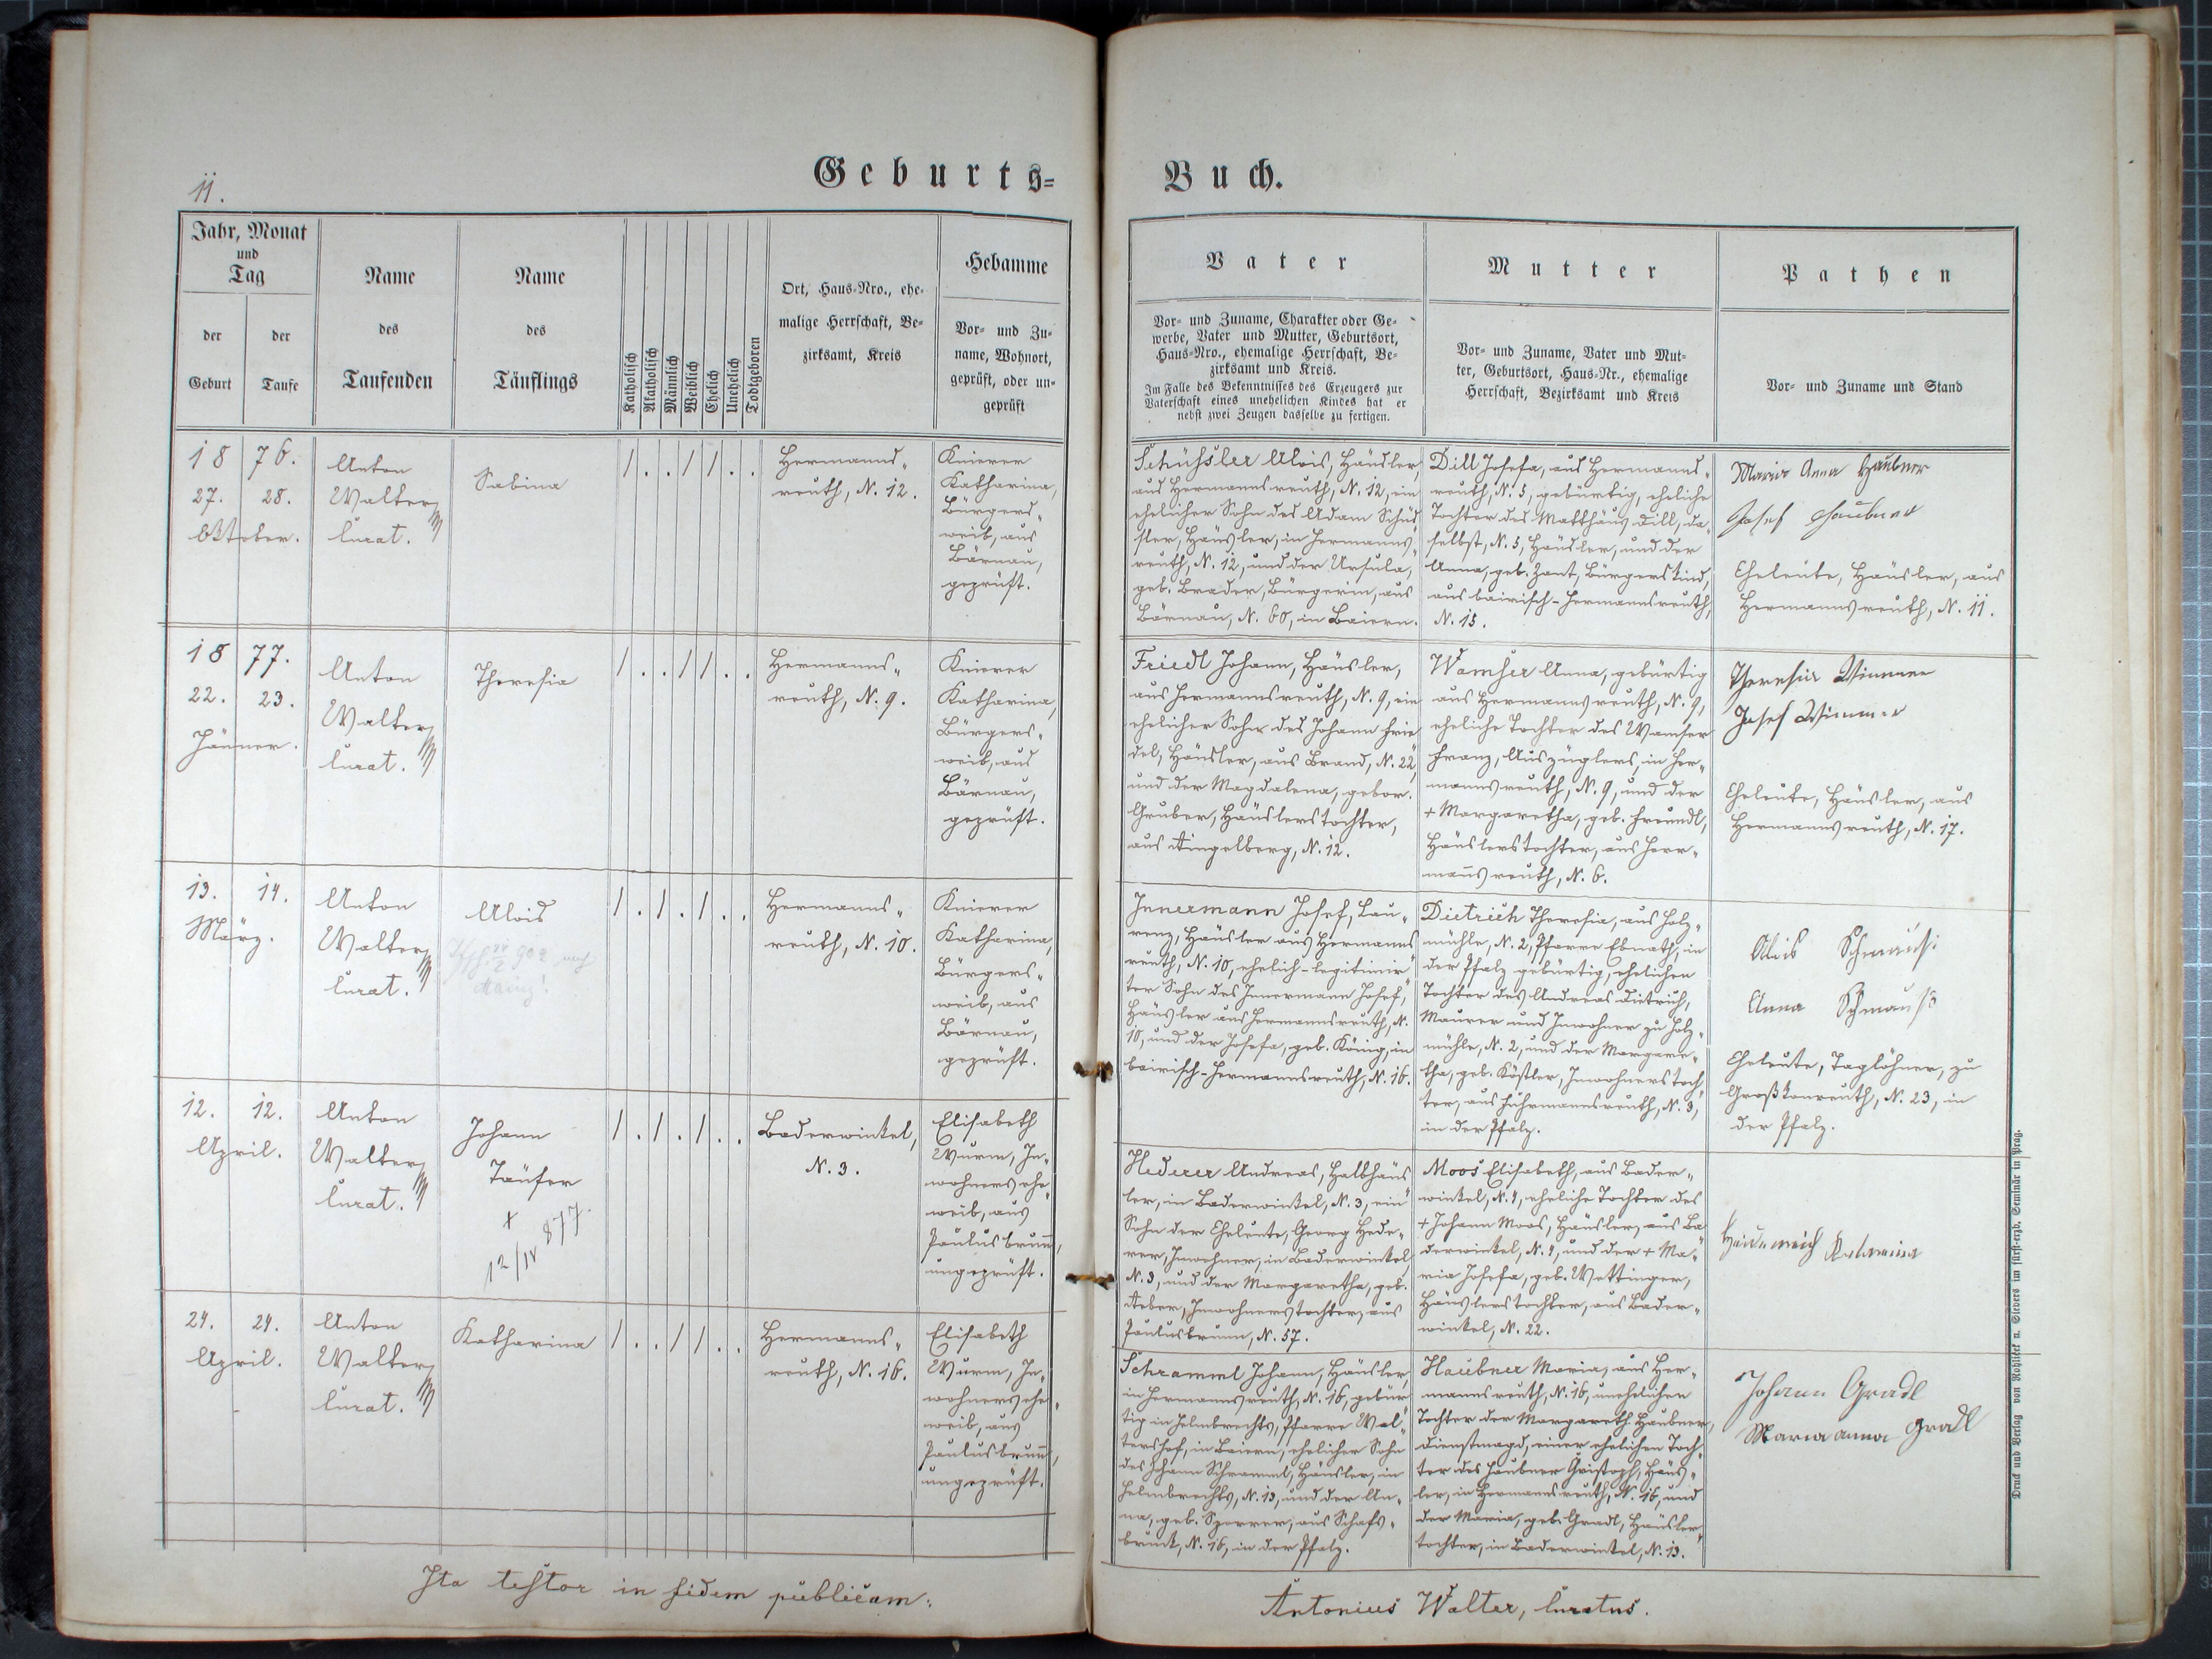 11.
Geburts=
Buch.
Jahr, Monat
und
Tag
der
Geburt
der
Taufe
Name
des
Taufenden
Name
des
Täuflings
Katholisch
Akatholisch
Männlich
Weiblich
Ehelich
Unehelich
Todtgeboren
Ort, Haus-Nro., ehe-
malige Herrschaft, Be-
zirksamt, Kreis
Hebamme
Vor- und Zu-
name, Wohnort,
geprüft, oder un-
geprüft
Vater
Vor- und Zuname, Charakter oder Ge-
werbe, Vater und Mutter, Geburtsort,
Haus-Nro., ehemalige Herrschaft, Be-
zirksamt und Kreis.
Im Falle des Bekenntnisses des Erzeugers zur
Vaterschaft eines unehelichen Kindes hat er
nebst zwei Zeugen dasselbe zu fertigen.
Mutter
Vor- und Zuname, Vater und Mut-
ter, Geburtsort, Haus-Nr., ehemalige
Herrschaft, Bezirksamt und Kreis
Pathen
Vor- und Zuname und Stand
18 76.
27. 28.
Oktober.
Anton
Walter
Curat.
Sabina
/ . . / / . .
Hermanns-
reuth, N. 12.
Knierer
Katharina,
Bürgers-
weib, aus
Bärnau,
geprüft.
Schüssler Alois, Häusler,
aus Hermannsreuth, N. 12, ein
ehelicher Sohn des Adam Schüs
sler, Häusler, in Hermanns-
reuth, N. 12, und der Ursula,
geb. Brader, Bürgerin, aus
Bärnau, N. 60, in Baiern.
Dill Josefa, aus Hermanns-
reuth, N. 5, gebürtig, eheliche
Tochter des Matthäus Dill, da-
selbst, N. 5, Häusler, und der
Anna, geb. Zant, Bürgerskind,
aus bairisch-Hermannsreuth,
N. 15.
Maria Anna Haubner
Josef Haubner
Eheleute, Häusler, aus
Hermannsreuth, N. 11.
18 77.
22. 23.
Jänner.
Anton
Walter
Curat.
Theresia
/ . . / / . .
Hermanns-
reuth, N. 9.
Knierer
Katharina,
Bürgers-
weib, aus
Bärnau,
geprüft.
Friedl Johann, Häusler,
aus Hermannsreuth, N. 9, ein
ehelicher Sohn des Johann Frie
del, Häusler, aus Brand, N. 22,
und der Magdalena, gebor.
Gruber, Häuslerstochter,
aus Dingelberg, N. 12.
Wamser Anna, gebürtig
aus Hermannsreuth, N. 9,
eheliche Tochter des Wamser
Franz, Auszüglers, in Her-
mannsreuth, N. 9, und der
+ Margaretha, geb. Freundl,
Häuslerstochter, aus Herr-
mañsreuth, N. 6.
Theresia Wimmer
Josef Wimmer
Eheleute, Häusler, aus
Hermannsreuth, N. 17.
13. 14.
März.
Anton
Walter
Curat.
Alois
902 nach
/ . / . / . .
Hermanns-
reuth, N. 10.
Knierer
Katharina,
Bürgers-
weib, aus
Bärnau,
geprüft.
Innermann Josef, Lau-
renz, Häusler aus Hermanns
reuth, N. 10, ehelich-legitimir-
ter Sohn des Innermann Josef,
Häusler aus Hermannsreuth, N.
10, und der Josefa, geb. König, in
bairisch-Hermannsreuth, N. 16.
Dietrich Theresia, aus Holz-
mühle, N. 2, Pfarre Ebnath, in
der Pfalz gebürtig, ehelichen
Tochter des Andreas Dietrich,
Maurer und Inwohner zu Holz-
mühle, N. 2, und der Margare-
tha, geb. Köstler, Inwohnerstoch
ter, aus Fuhrmannsreuth, N. 3,
in der Pfalz.
Alois Schmauß
Anna Schmauß
Eheleute, Taglöhner, zu
Großkonreuth, N. 23, in
der Pfalz.
12. 12.
April.
Anton
Walter
Curat.
Johann
Täufer
+
12/IV 877.
/ . / . / . .
Baderwinkel,
N. 3.
Elisabeth
Wurm, In-
wohners ehe-
weib, aus
Paulusbruñ,
ungeprüft.
Hederer Andreas, Halbhäus
ler, in Baderwinkel, N. 3, ein
Sohn der Eheleute, Georg Hede-
rer, Inwohner, in Baderwinkel,
N. 3, und der Margaretha, geb.
Inwohnerstochter, aus
Paulusbrunn, N. 57.
Moos Elisabeth, aus Bader-
winkel, N. 4, eheliche Tochter des
+ Johann Moos, Häusler, aus Ba
derwinkel, N. 4, und der + Ma-
ria Josefa, geb. Wettinger,
Häuslerstochter, aus Bader-
winkel, N. 22.
24. 24.
April.
Anton
Walter
Curat.
Katharina
/ . . / / . .
Hermanns-
reuth, N. 16.
Elisabeth
Wurm, In-
wohners ehe-
weib, aus
Paulusbruñ,
ungeprüft.
Schramml Johann, Häusler,
in Hermannsreuth, N. 16, gebür
tig in Helmbrechts, Pfarre Wal-
tershof, in Baiern, ehelicher Sohn
des Johann Schramml, Häusler, in
Helmbrechts, N. 13, und der An-
na, geb. Sporrer, aus Schafs-
bruck, N. 16, in der Pfalz.
Haubner Maria, aus Her-
mannsreuth, N. 16, unehelichen
Tochter der Margareth Haubner,
Dienstmagd, einer ehelichen Toch
ter des Haubner Christoph, Häus-
ler, in Hermannsreuth, N. 16, und
der Maria, geb. Gradl, Häusler
tochter, in Baderwinkel, N. 13.
Johann Gradl
Maria anna Gradl
Ita testor in fidem publicam:
Antonius Walter, Curatus.
Druck und Verlag von Rohliček u. Sievers im fürst-erzb. Seminär in Prag.